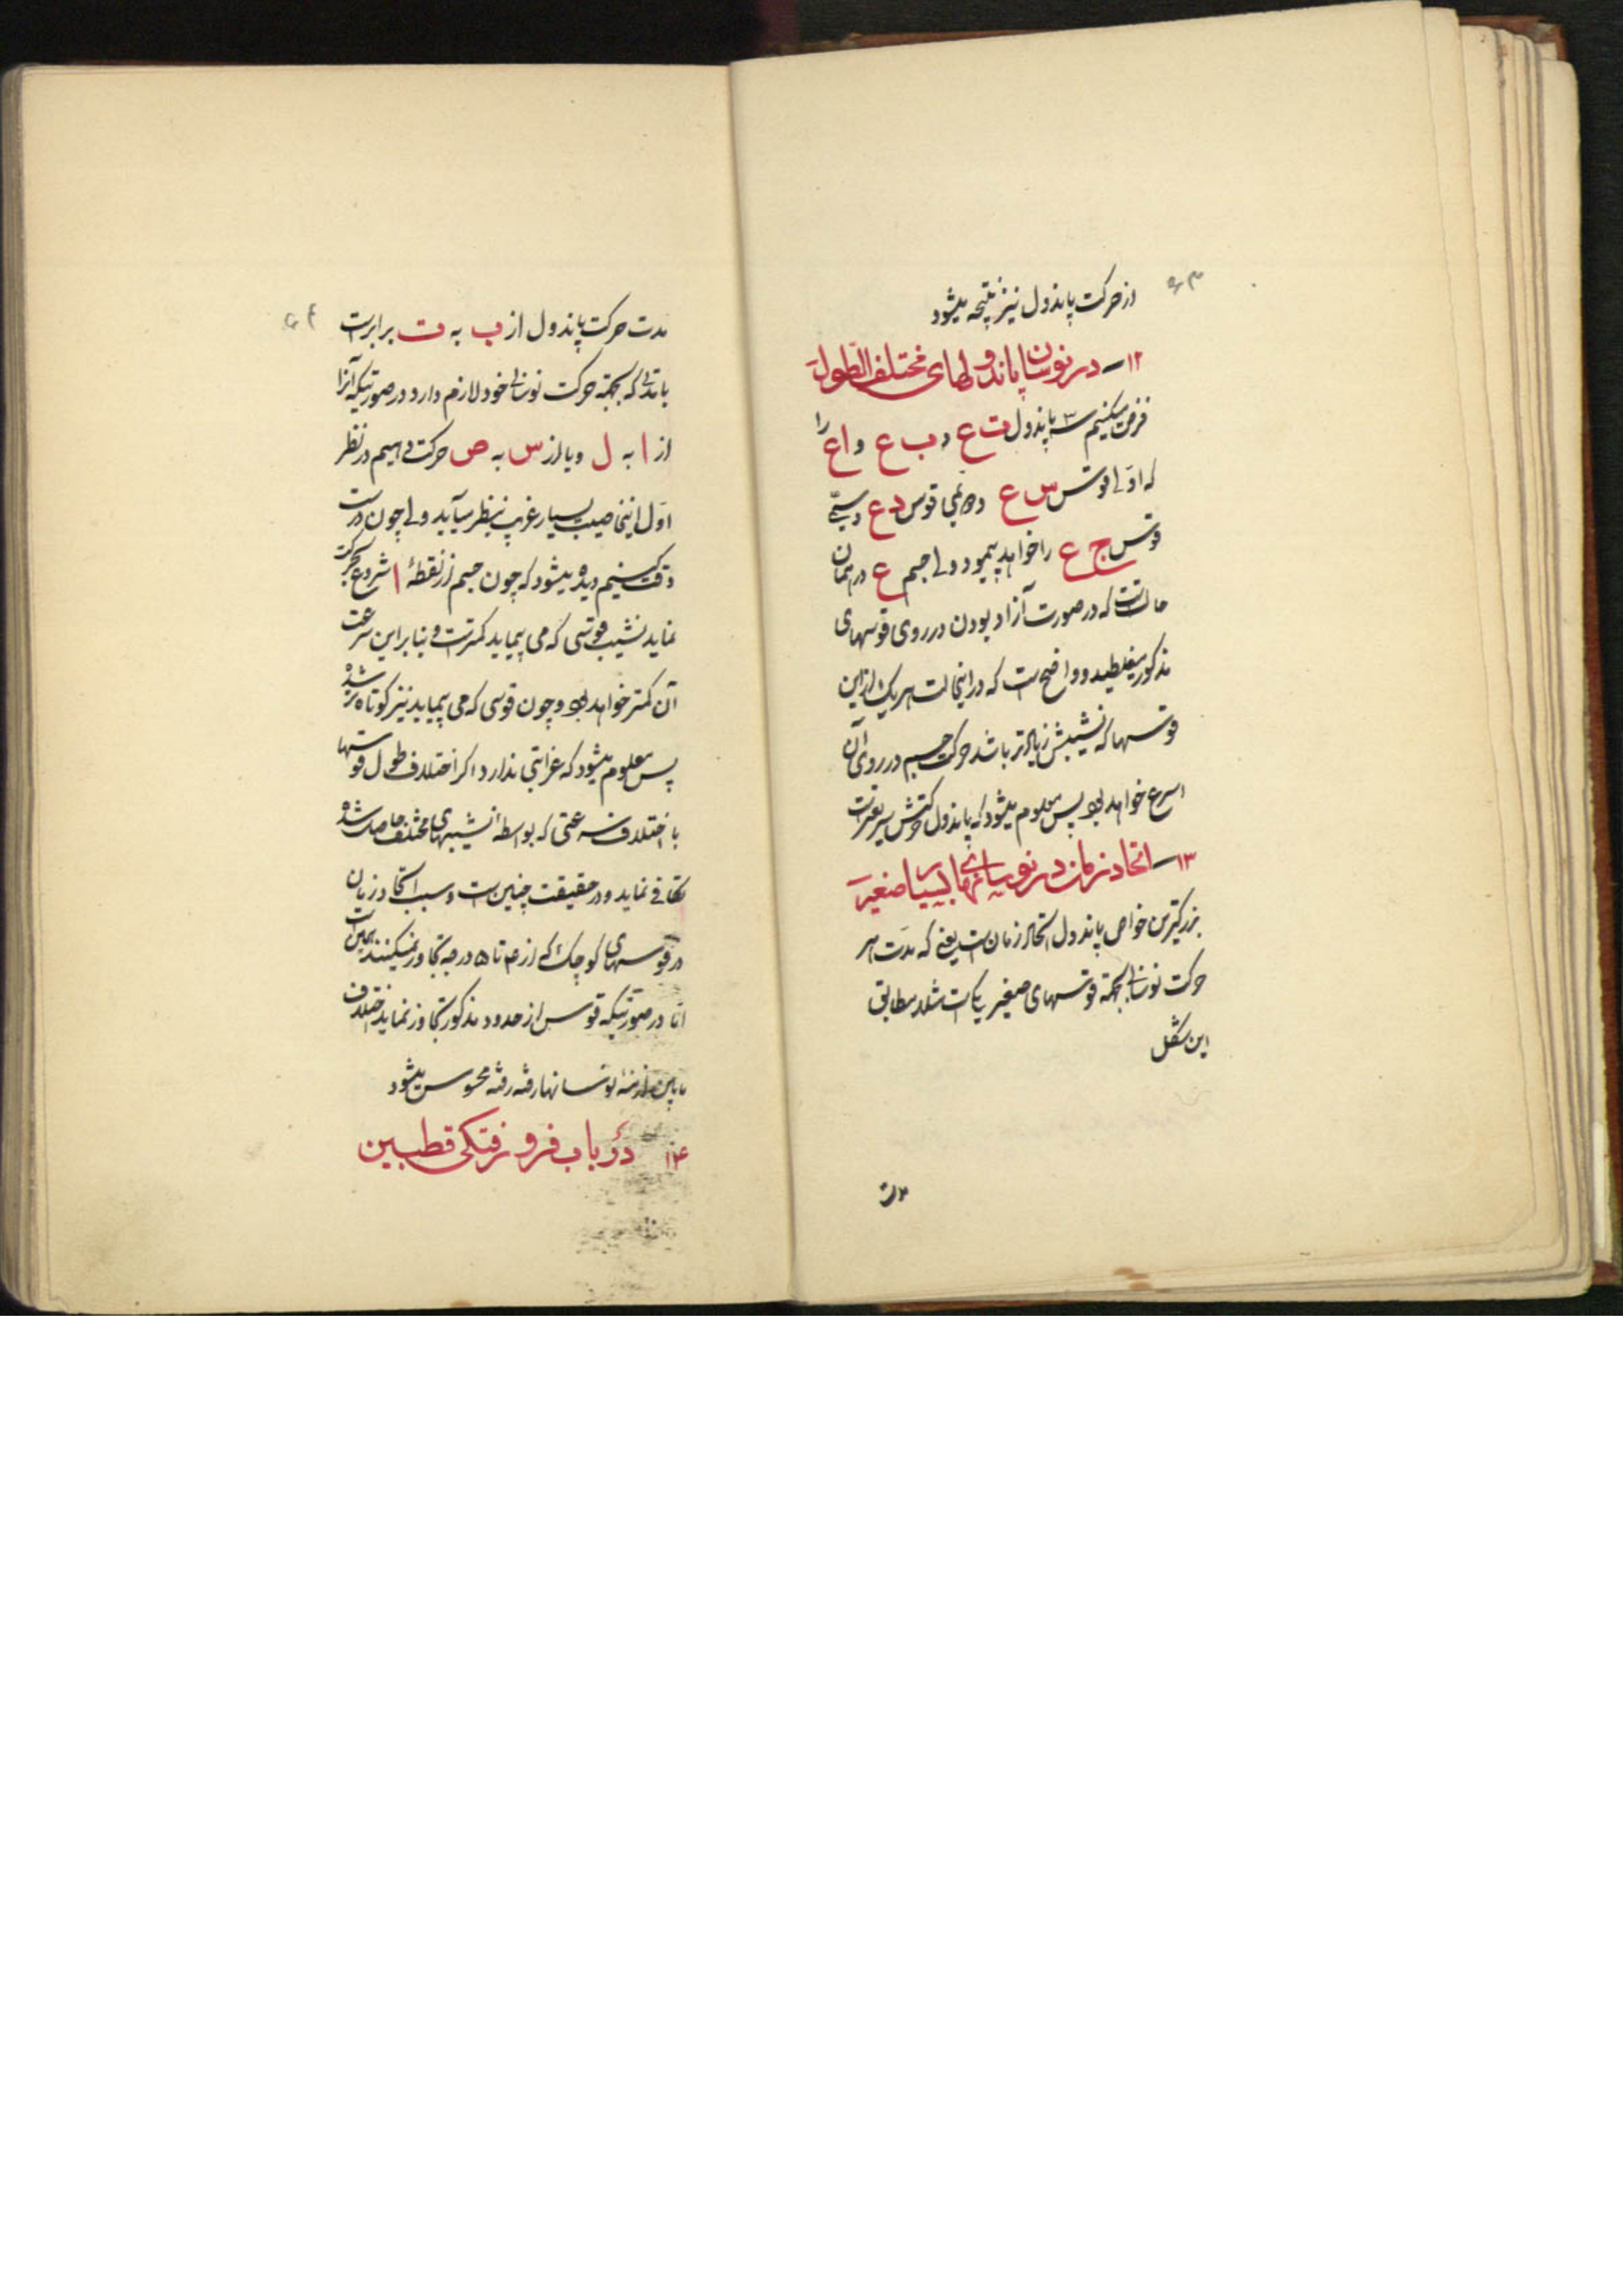 ۶۳
از حرکت پاندول نیز نتیجه میشود
۱۲- در نوسان پاندولهای مختلف الطول
فرض میکنیم سه پاندول ت ع و ب ع و ا ع را
که اولی قوس س ع و دویمی قوس د ع و سیمی
قوس ج ع را خواهد پیمود ولی جسم ع در همان
حالتست که در صورت آزاد بودن در روی قوسهای
مذکور میغلطید و واضحست که در اینحالت هر یک از این
قوسها که نشیبش زیادتر باشد حرکت جسم در روی آن
اسرع خواهد بود پس معلوم میشود که پاندول حرکتش سریعترست
۱۳- اتحاد زمان در نوسانهای بسیار صغیر
بزرگترین خواص پاندول اتحاد زمانست یعنی که مدت هر
حرکت نوسانی بجهة قوسهای صغیر یکیست مثلا مطابق
این شکل
مدت
۶۴
مدت حرکت پاندول از ب به ت برابرست
با مدتی که بجهة حرکت نوسانی خود لازم دارد در صورتیکه آنرا
از ا به ل و یا از س به ص حرکت دهیم در نظر
اول اینخاصیت بسیار غریب بنظر میآید ولی چون درست
دقت کنیم دیده میشود که چون جسم از نقطهٔ ا شروع بحرکت
نماید نشیب قوسی که می پیماید کمترست و بنابراین سرعت
آن کمتر خواهد بود و چون قوسی که می پیماید نیز کوتاه تر شده
پس معلوم میشود که غرابتی ندارد اگر اختلاف طول قوسها
با اختلاف سرعتی که بواسطهٔ نشیبهای مختلف حاصل شده
تکافی نماید و در حقیقت چنین است و سبب اتحاد زمان
در قوسهای کوچک که از ۴ تا ۵ درجه تجاوز نمیکنند همین است
اما در صورتیکه قوس از حدود مذکور تجاوز نماید اختلاف
مابین ازمنهٔ نوسانها رفته رفته محسوس میشود
۱۴ در باب فرو رفتکی قطبین